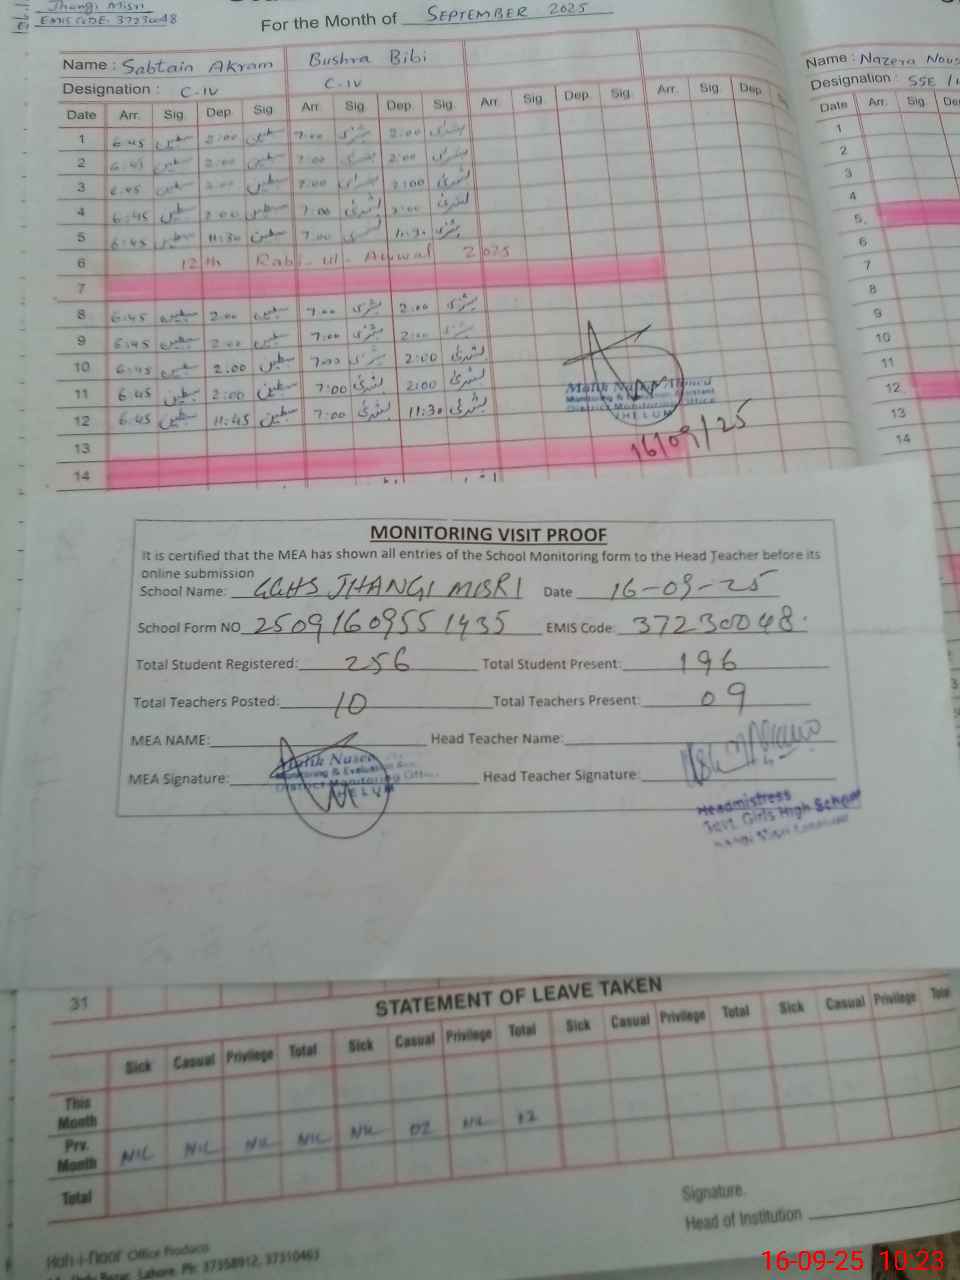 Jhangi Misri
EMIS CODE: 37230048
For the Month of SEPTEMBER 2025
Name : Sabtain Akram Bushra Bibi
Designation : C-IV C-IV
Date Arr. Sig. Dep. Sig. Arr. Sig. Dep. Sig. Arr. Sig. Dep. Sig. Arr. Sig. Dep.
1 6:45 سبطین 2:00 سبطین 7:00 بشریٰ 2:00 بشریٰ
2 6:45 سبطین 2:00 سبطین 7:00 بشریٰ 2:00 بشریٰ
3 6:45 سبطین 2:00 سبطین 7:00 بشریٰ 2:00 بشریٰ
4 6:45 سبطین 2:00 سبطین 7:00 بشریٰ 2:00 بشریٰ
5 6:45 سبطین 11:30 سبطین 7:00 بشریٰ 11:30 بشریٰ
6 12th Rabi-ul-Awwal 2025
7
8 6:45 سبطین 2:00 سبطین 7:00 بشریٰ 2:00 بشریٰ
9 6:45 سبطین 2:00 سبطین 7:00 بشریٰ 2:00 بشریٰ
10 6:45 سبطین 2:00 سبطین 7:00 بشریٰ 2:00 بشریٰ
11 6:45 سبطین 2:00 سبطین 7:00 بشریٰ 2:00 بشریٰ
12 6:45 سبطین 11:45 سبطین 7:00 بشریٰ 11:30 بشریٰ
13
14
Malik
Monitoring & Evaluation Assistant
District Monitoring Office
JHELUM
16/09/25
Name : Nazera
Designation : SSE
Date Arr. Sig.
1
2
3
4
5.
6
7
8
9
10
11
12
13
14
MONITORING VISIT PROOF
It is certified that the MEA has shown all entries of the School Monitoring form to the Head Teacher before its
online submission
School Name: GGHS JHANGI MISRI Date 16-09-25
School Form NO 2509160955 1435 EMIS Code: 37230048.
Total Student Registered: 256 Total Student Present: 196
Total Teachers Posted: 10 Total Teachers Present: 09
MEA NAME: Head Teacher Name:
MEA Signature: Head Teacher Signature:
Malik
Monitoring & Evaluation
District Monitoring Office
JHELUM
Headmistress
Govt. Girls High School
31
STATEMENT OF LEAVE TAKEN
Sick Casual Privilege Total Sick Casual Privilege Total Sick Casual Privilege Total Sick Casual Privilege Total
This Month
Prv. Month NIL NIL NIL NIL NIL 02 NIL 02
Total
Signature.
Head of Institution
Koh-i-Noor Office Products
Lahore. Ph: 37358912, 37310463
16-09-25 10:23